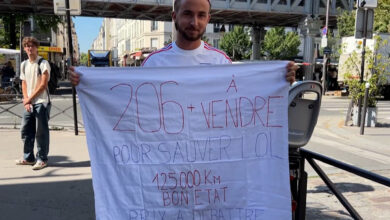 À
206+ VENDRE
POUR SAUVER L'OL
125000 Km
BON ETAT
PRIX A DEBATTRE